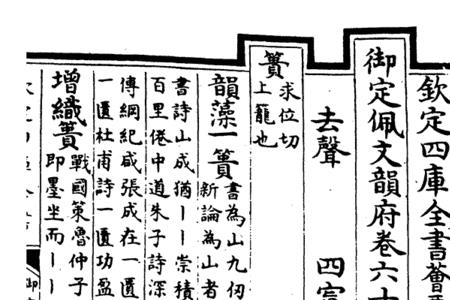 欽定四庫全書薈
御定佩文韻府卷六十
去聲 四寘
簣 求位切
上籠也
韻藻一簣 書為山九仞
新論為山者
書詩山成猶丨丨崇積
百里倦中道朱子詩深
傳綱紀咸張成在一匱
一匱杜甫詩一匱功盈
增織簣 戰國策魯仲子
即墨坐而丨丨